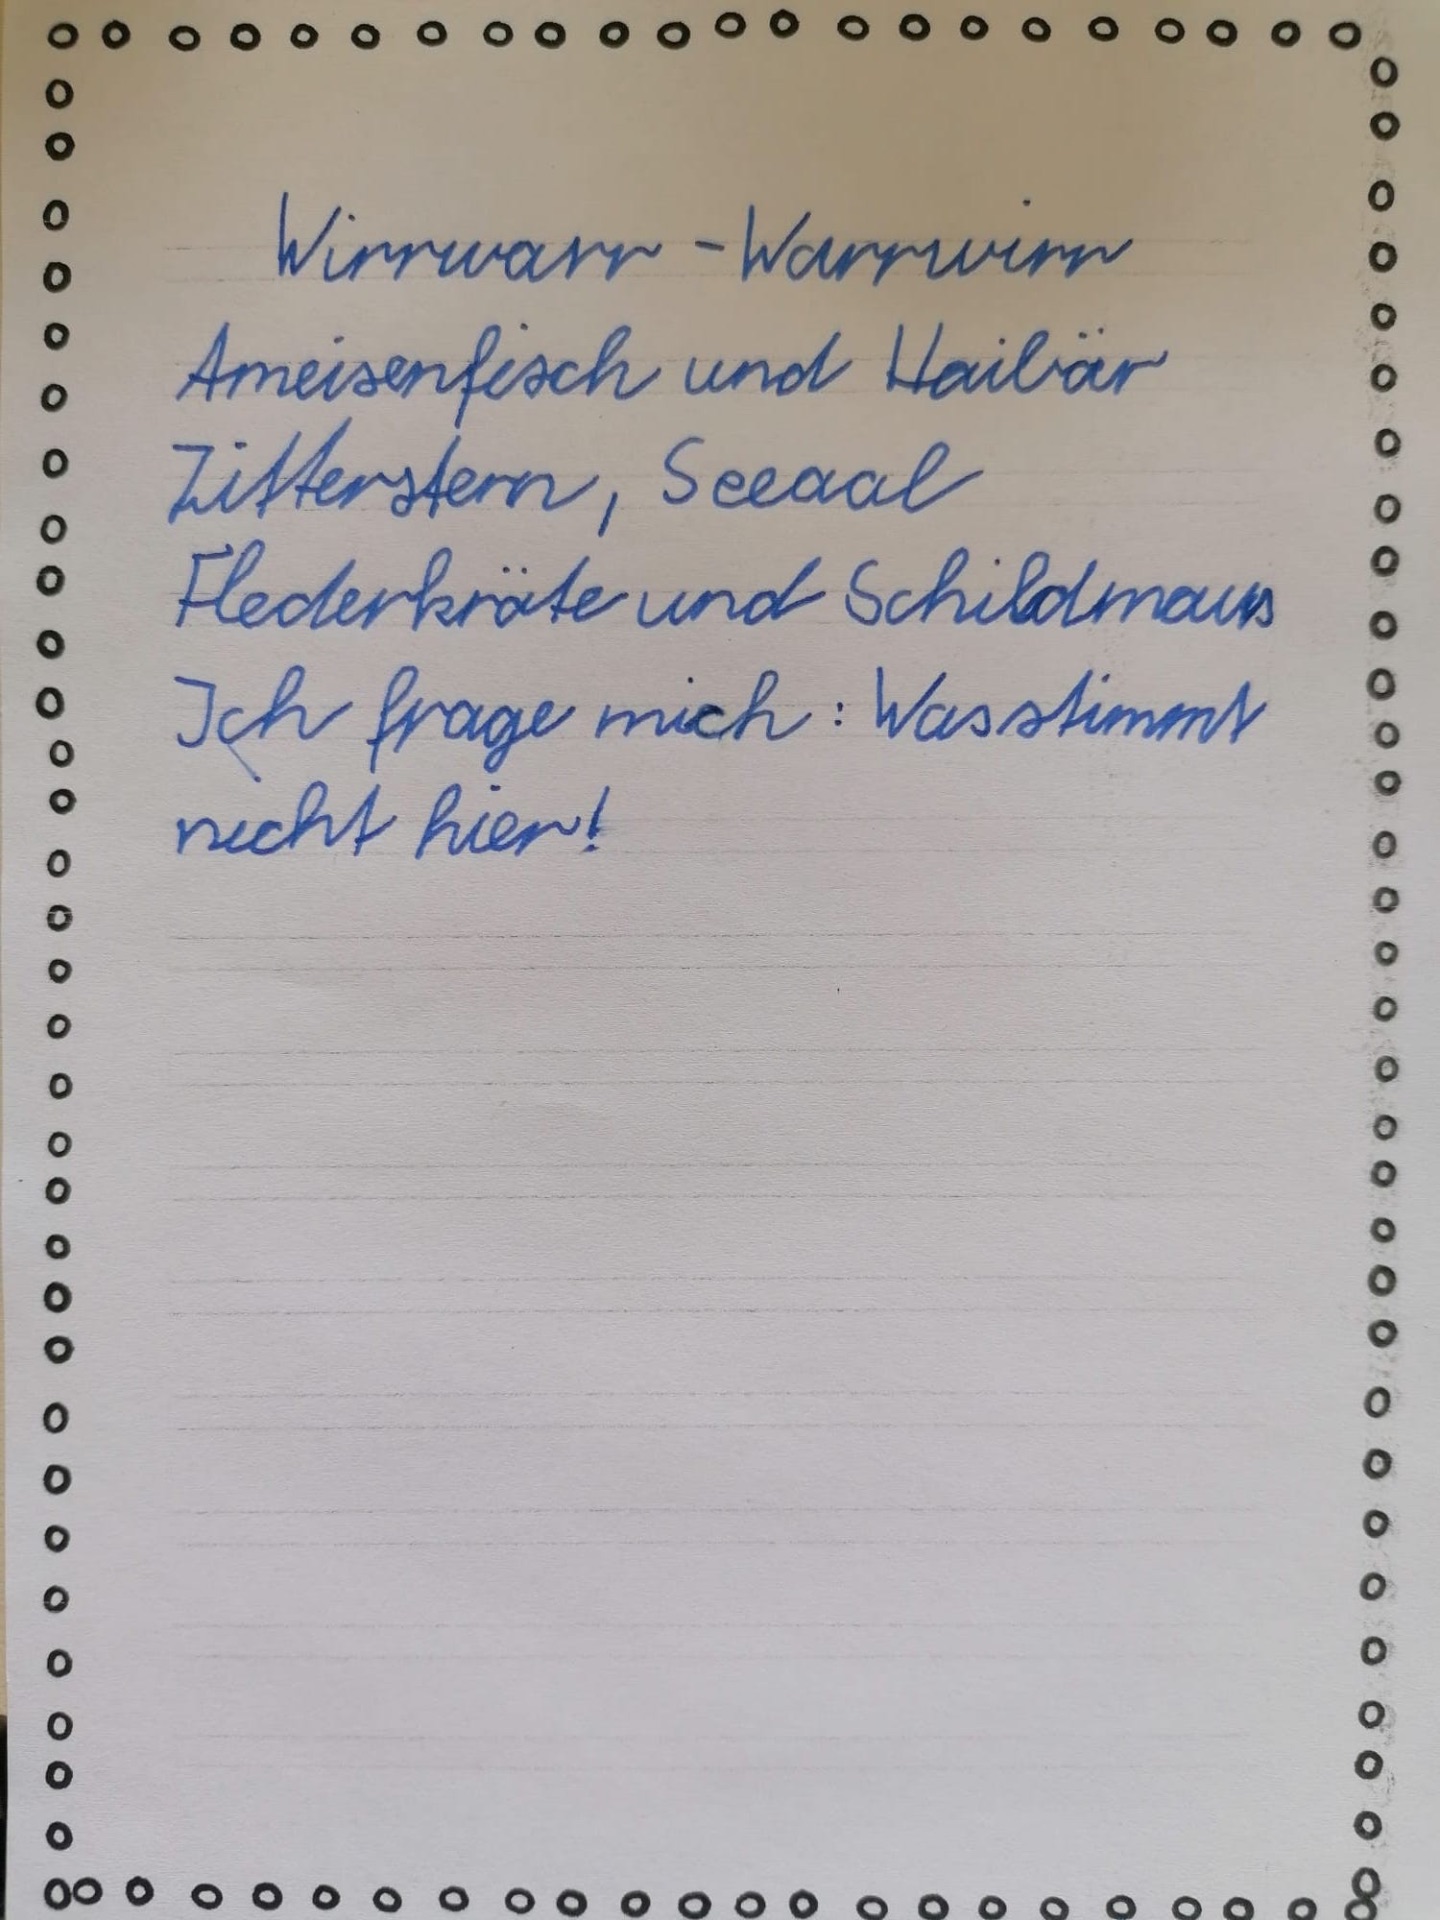 Wirrwarr - Warrwirr
Ameisenfisch und Haibär
Zitterstern, Seeaal
Flederkräte und Schildmaus
Ich frage mich: Was stimmt
nicht hier!